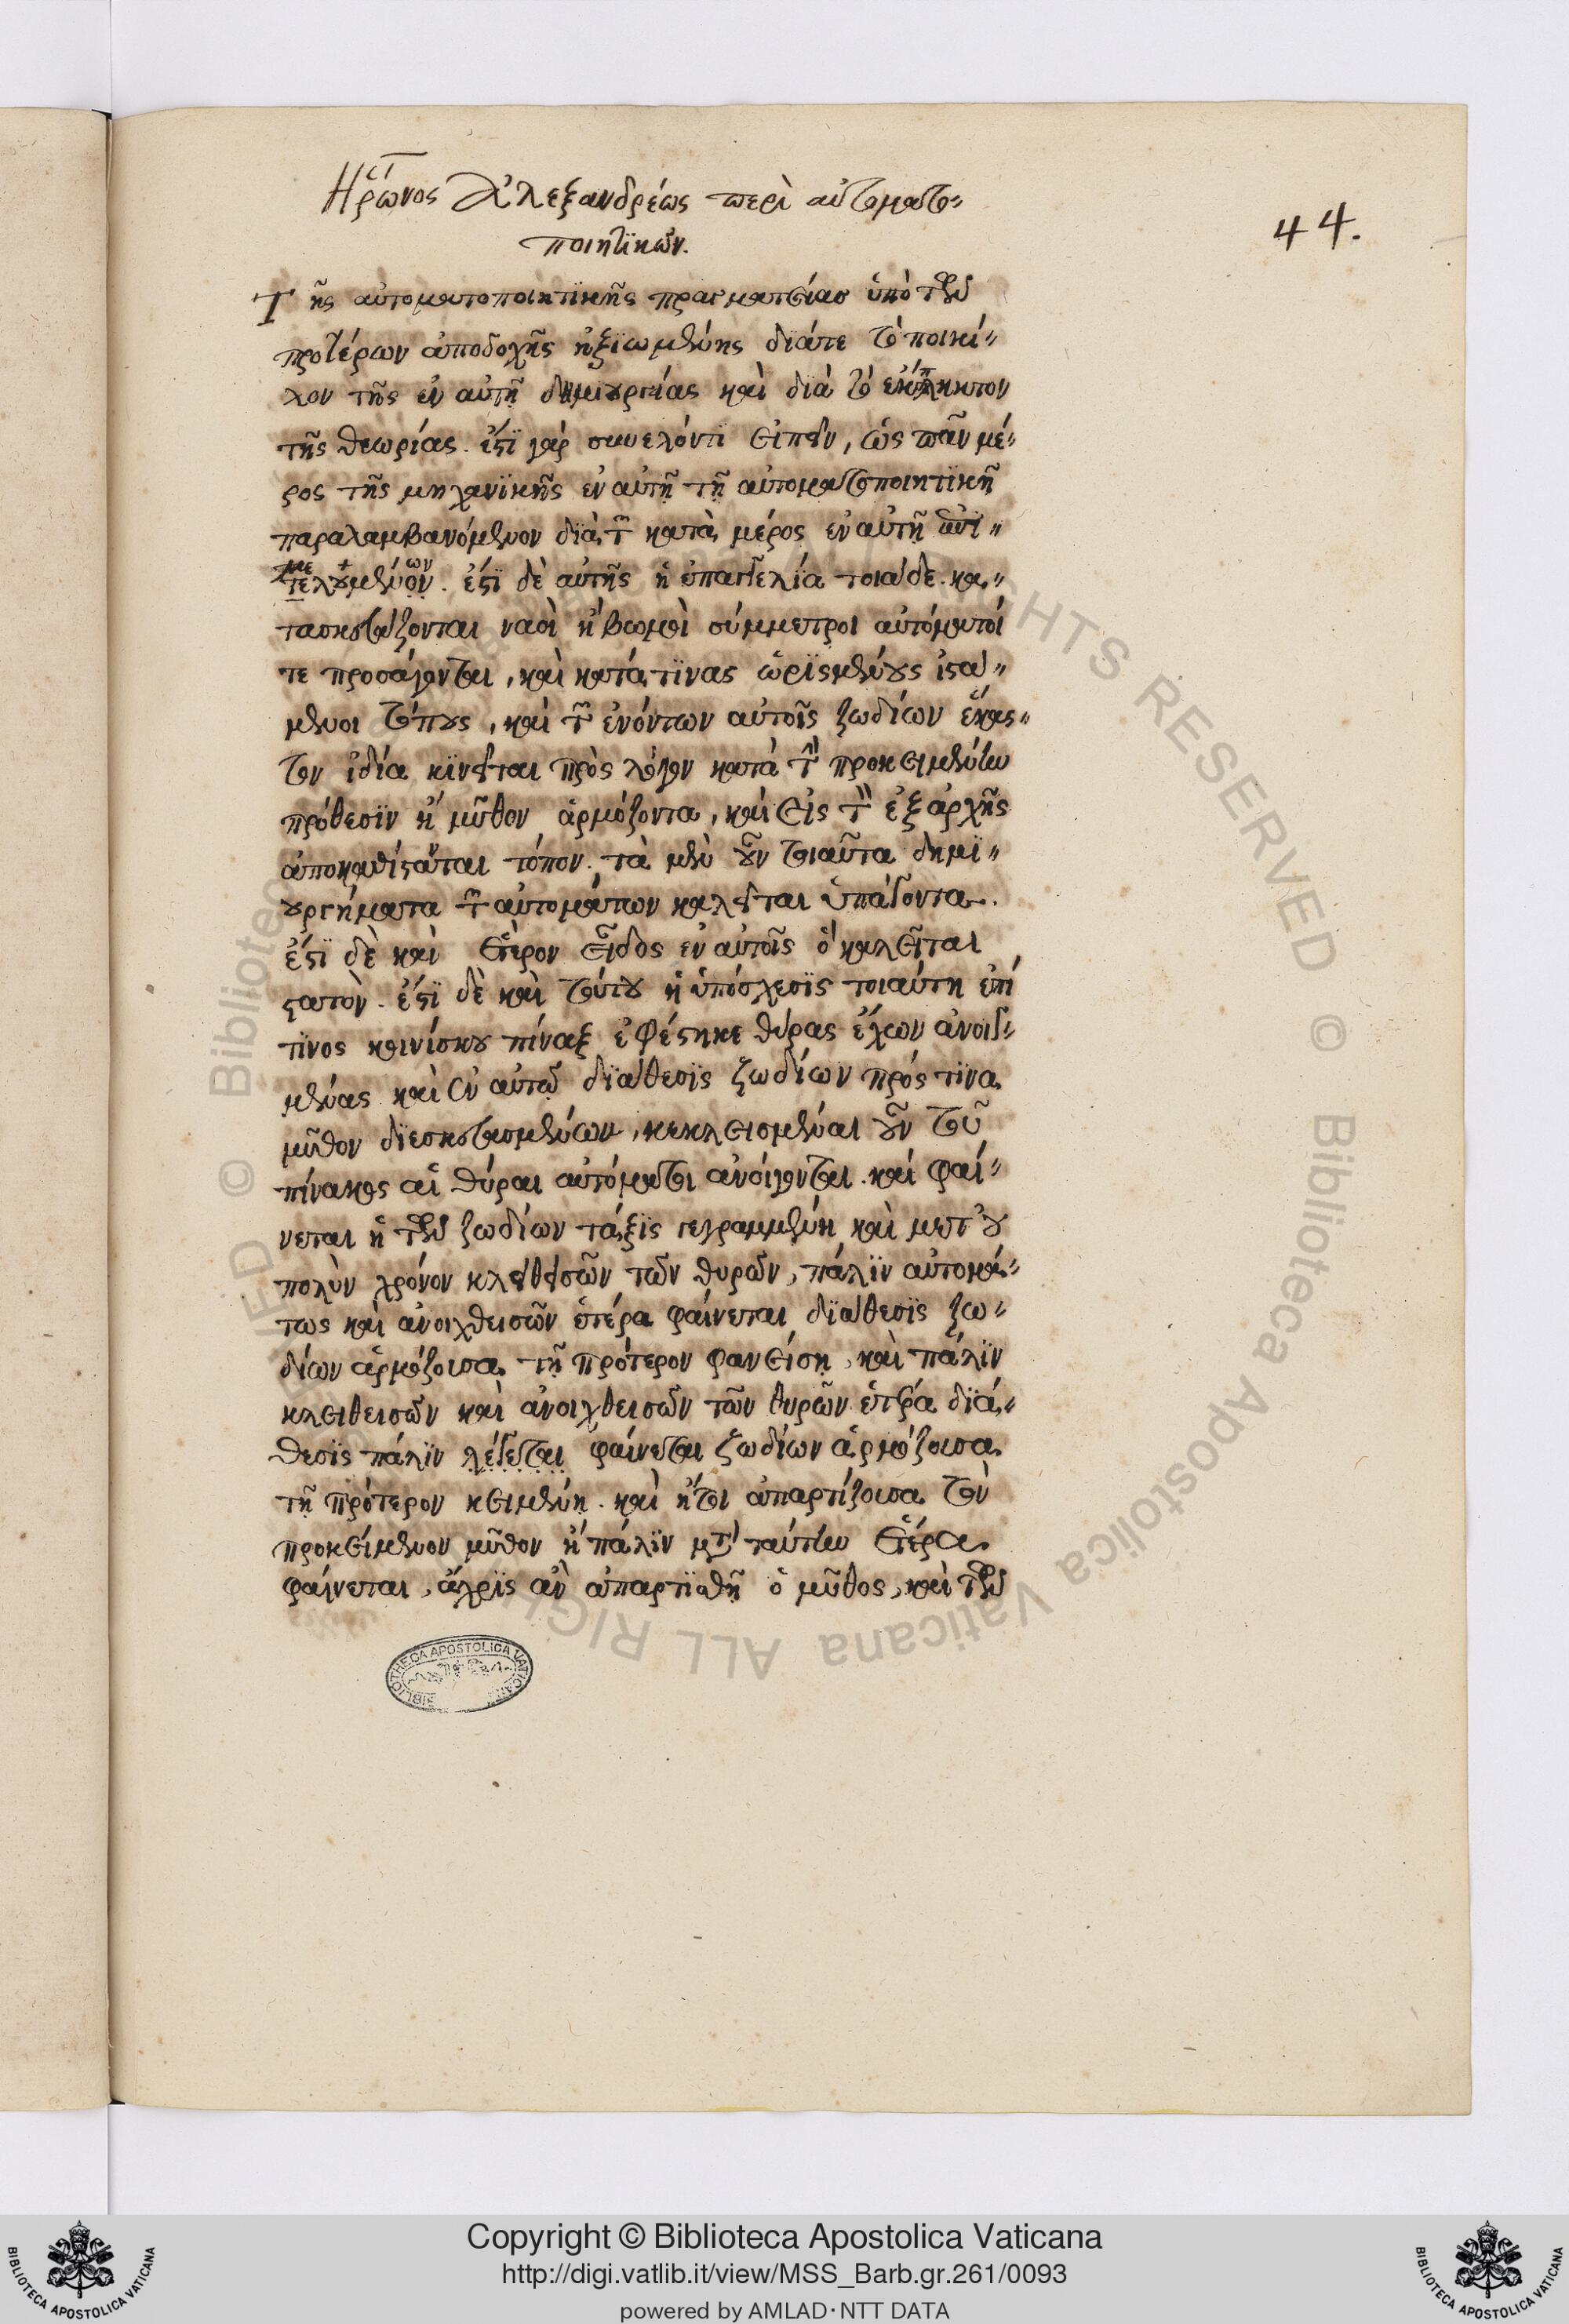 Ἥρωνος Ἀλεξανδρέως περὶ αὐτοματο-
ποιητικῶν.
44.
Τῆς αὐτοματοποιητικῆς πραγματείας ὑπὸ τῶν
προτέρων ἀποδοχῆς ἠξιωμένης διάτε τὸ ποικί-
λον τῆς ἐν αὐτῇ δημιουργίας καὶ διὰ τὸ ἔκπληκτον
τῆς θεωρίας. ἔστι γὰρ συνελόντι εἰπεῖν, ὡς πᾶν μέ-
ρος τῆς μηχανικῆς ἐν αὐτῇ τῇ αὐτοματοποιητικῇ
παραλαμβανόμενον διὰ τῶν κατὰ μέρος ἐν αὐτῇ
ἔστι δὲ αὐτῆς ἡ ἐπαγγελία τοιάδε. κα-
τασκευάζονται ναοὶ ἢ βωμοὶ σύμμετροι αὐτόματοί
τε προσάγονται, καὶ κατά τινας ὡρισμένους ἱστά-
μενοι τόπους, καὶ τῶν ἐνόντων αὐτοῖς ζωδίων ἕκασ-
τον ἰδία κινεῖται πρὸς λόγον κατὰ τὴν προκειμένην
πρόθεσιν ἢ μῦθον ἁρμόζοντα, καὶ εἰς τὸν ἐξ ἀρχῆς
ἀποκαθίσταται τόπον. τὰ μὲν οὖν τοιαῦτα δημι-
ουργήματα τῶν αὐτομάτων καλεῖται ὑπάγοντα.
ἔστι δὲ καὶ ἕτερον εἶδος ἐν αὐτοῖς ὃ καλεῖται
στατὸν. ἔστι δὲ καὶ τούτου ἡ ὑπόσχεσις τοιαύτη ἐπί
τινος κιονίσκου πίναξ ἐφέστηκε θύρας ἔχων ἀνοιγ-
μένας καὶ ἐν αὐτῷ διάθεσις ζωδίων πρός τινα
μῦθον διεσκευασμένων, κεκλεισμέναι οὖν τοῦ
πίνακος αἱ θύραι αὐτόματοι ἀνοίγονται. καὶ φαί-
νεται ἡ τῶν ζωδίων τάξις γεγραμμένη καὶ μετ' οὐ
πολὺν χρόνον κλειθεισῶν τῶν θυρῶν, πάλιν αὐτομά-
τως καὶ ἀνοιχθεισῶν ἑτέρα φαίνεται διάθεσις ζω-
δίων ἁρμόζουσα τῇ πρότερον φανείσῃ, καὶ πάλιν
κλειθεισῶν καὶ ἀνοιχθεισῶν τῶν θυρῶν ἑτέρα διά-
θεσις πάλιν λέγεται φαίνεται ζωδίων ἁρμόζουσα
τῇ πρότερον κειμένῃ. καὶ ἤτοι ἀπαρτίζουσα τὸν
προκείμενον μῦθον ἢ πάλιν μετὰ ταύτην ἑτέρα
φαίνεται, ἄχρις ἂν ἀπαρτισθῇ ὁ μῦθος, καὶ τῶν
BIBLIOTHECA APOSTOLICA VATICANA
© Biblioteca Apostolica Vaticana ALL RIGHTS RESERVED
Copyright © Biblioteca Apostolica Vaticana
http://digi.vatlib.it/view/MSS_Barb.gr.261/0093
powered by AMLAD·NTT DATA
BIBLIOTECA APOSTOLICA VATICANA
BIBLIOTECA APOSTOLICA VATICANA